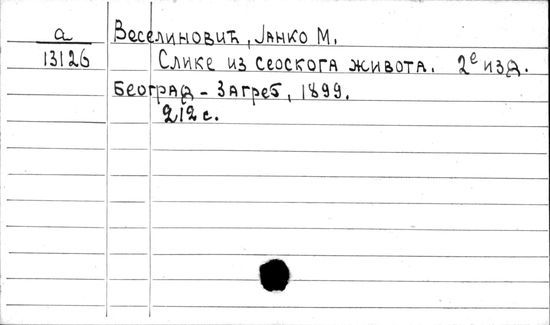 а Веселиновић, Јанко М.
13126 Слике из сеоскога живота. 2е изд.
Београд - Загреб, 1899.
212 с.